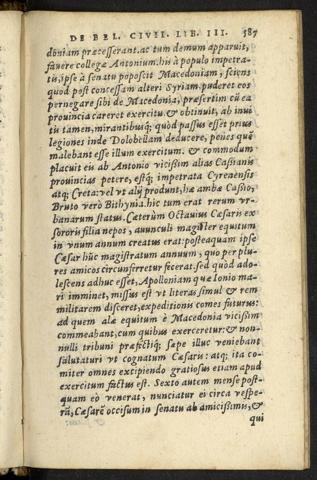 DE BEL. CIVIL. LIB. III. 587
doniam præcesserant. ac tum demum apparuit,
fauere collegæ Antonium. his à populo impetra-
tis, ipse à senatu poposcit Macedoniam, sciens
quòd post concessam alteri Syriam, puderet eos
pernegare sibi de Macedonia, præsertim cū ea
prouincia careret exercitu. & obtinuit, ab inui
tis tamen, mirantibusq; quòd passus esset prius
legiones inde Dolobellam deducere, penes quē
malebant esse illum exercitum. & commodum
placuit eis ab Antonio vicissim alias Cassianis
prouincias petere, estq; impetrata Cyrenæensis
atq; Creta: vel vt alij produnt, hæ ambæ Cassio,
Bruto verò Bithynia. hic tum erat rerum vr-
banarum status. Cæterùm Octauius Cæsaris ex
sororis filia nepos, auunculi magister equitum
in vnum annum creatus erat: posteaquam ipse
Cæsar hūc magistratum annuum, quo per plu-
res amicos circunferretur fecerat. sed quòd ado-
lescens adhuc esset, Apolloniam quæ Ionio ma-
ri imminet, missus est vt literas simul & rem
militarem disceret, expeditionis comes futurus:
ad quem alæ equitum è Macedonia vicissim
commeabant, cum quibus exerceretur: & non-
nulli tribuni præfectiq; sæpe illuc veniebant
salutaturi vt cognatum Cæsaris: atq; ita co-
miter omnes excipiendo gratiosus etiam apud
exercitum factus est. Sexto autem mense post-
quam eò venerat, nunciatur ei circa vespe-
rā, Cæsarē occisum in senatu ab amicissimis, &
qui